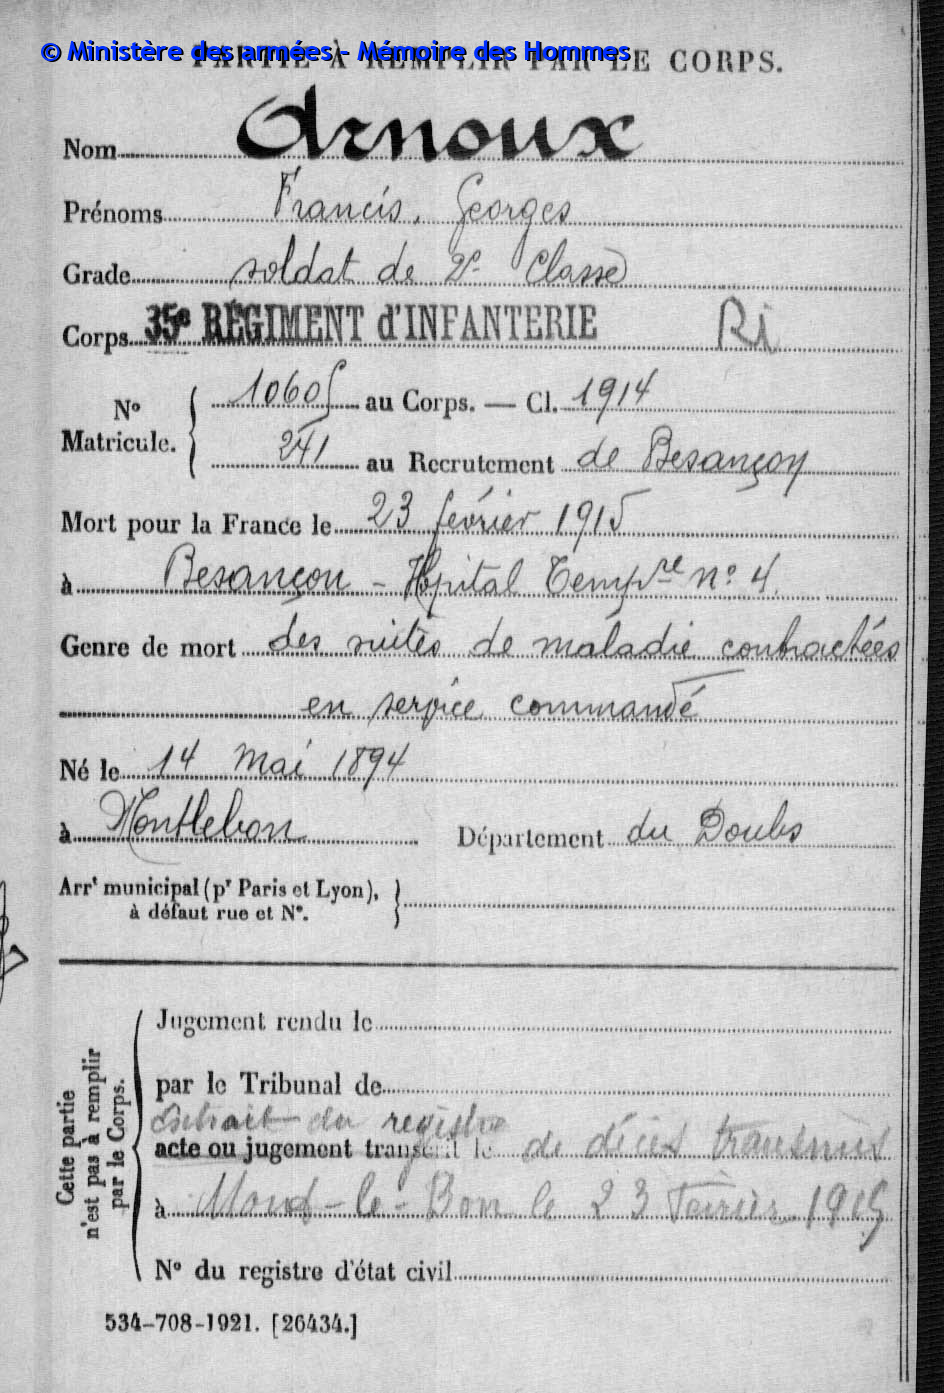 © Ministère des armées - Mémoire des Hommes
PARTIE À REMPLIR PAR LE CORPS.
Nom Arnoux
Prénoms Francis, Georges
Grade soldat de 2e Classe
Corps 35e RÉGIMENT d'INFANTERIE Ri
No Matricule. { 10605 au Corps. — Cl. 1914
241 au Recrutement de Besançon
Mort pour la France le 23 février 1915
à Besançon - Hôpital Tempre no 4.
Genre de mort des suites de maladie contractées
en service commandé
Né le 14 Mai 1894
à Montlebon Département du Doubs
Arrt municipal (pr Paris et Lyon),
à défaut rue et No. }
Cette partie
n'est pas à remplir
par le Corps.
Jugement rendu le
par le Tribunal de
extrait du registre
acte ou jugement transcrit le de décès transmis
à Mont-le-Bon le 23 Février 1915
No du registre d'état civil
534-708-1921. [26434.]